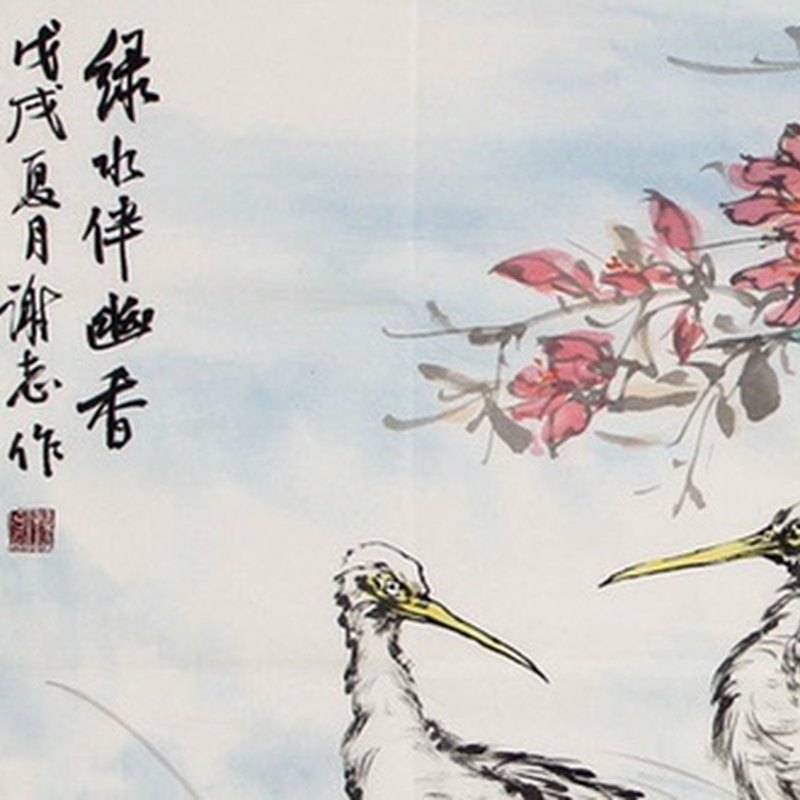 绿水伴幽香
戊戌夏月谢志作